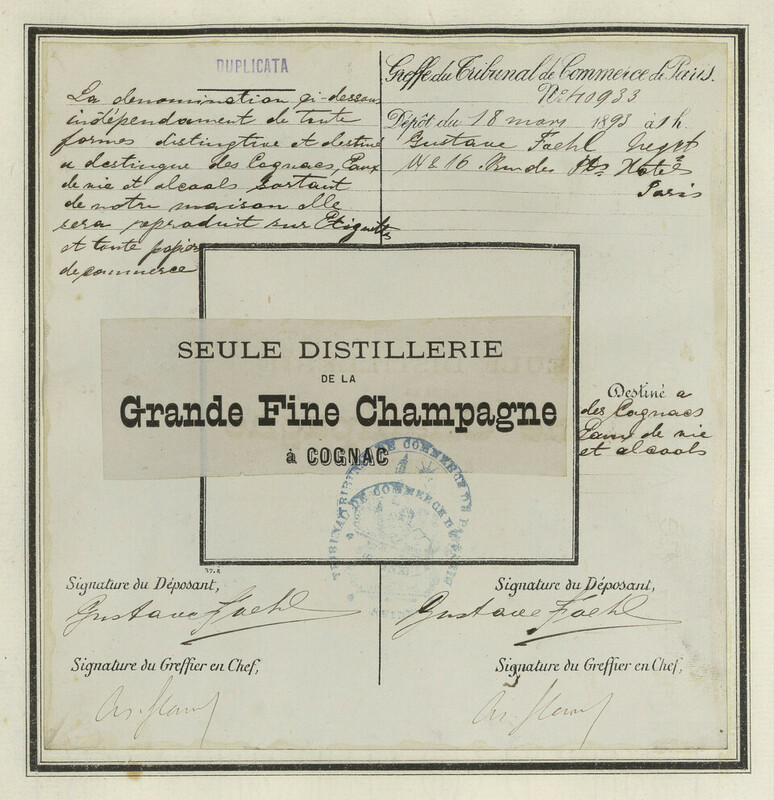 DUPLICATA
La denomination çi-dessous
indépendament de toute
formes distinctive et destiné
a distingue des Cognacs, Eaux
de vie et alcools sortant
de notre maison elle
sera reproduit sur Etiquettes
et toute papier
de commerce
Greffe du Tribunal de Commerce de Paris.
No 40933
Dépôt du 18 mars 1893 à 1 h.
Gustave Foehl Negt
14 & 16 Rue des Hotels
Paris
SEULE DISTILLERIE
DE LA
Grande Fine Champagne
à COGNAC
Destiné a
des Cognacs
Eaux de vie
et alcools
TRIBUNAL DE COMMERCE DE
Signature du Déposant,
Gustave Foehl
Signature du Greffier en Chef,
Signature du Déposant,
Gustave Foehl
Signature du Greffier en Chef,